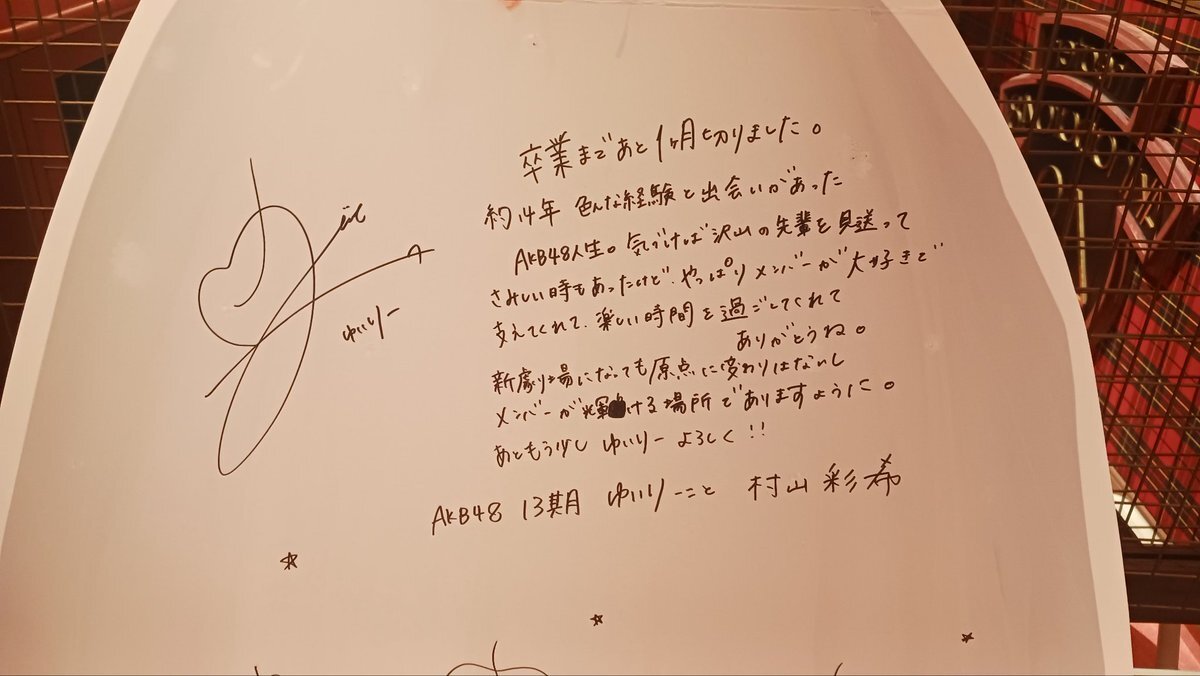 卒業まであと1ヶ月切りました。
約14年 色んな経験と出会いがあった
AKB48人生。気づけば沢山の先輩を見送って
さみしい時もあったけど、やっぱりメンバーが大好きで
支えてくれて、楽しい時間を過ごしてくれて
ありがとうね。
新劇場になっても原点に変わりはないし
メンバーが輝ける場所でありますように。
あともう少し ゆいりー よろしく!!
AKB48 13期 ゆいりーこと 村山彩希
ゆいりー